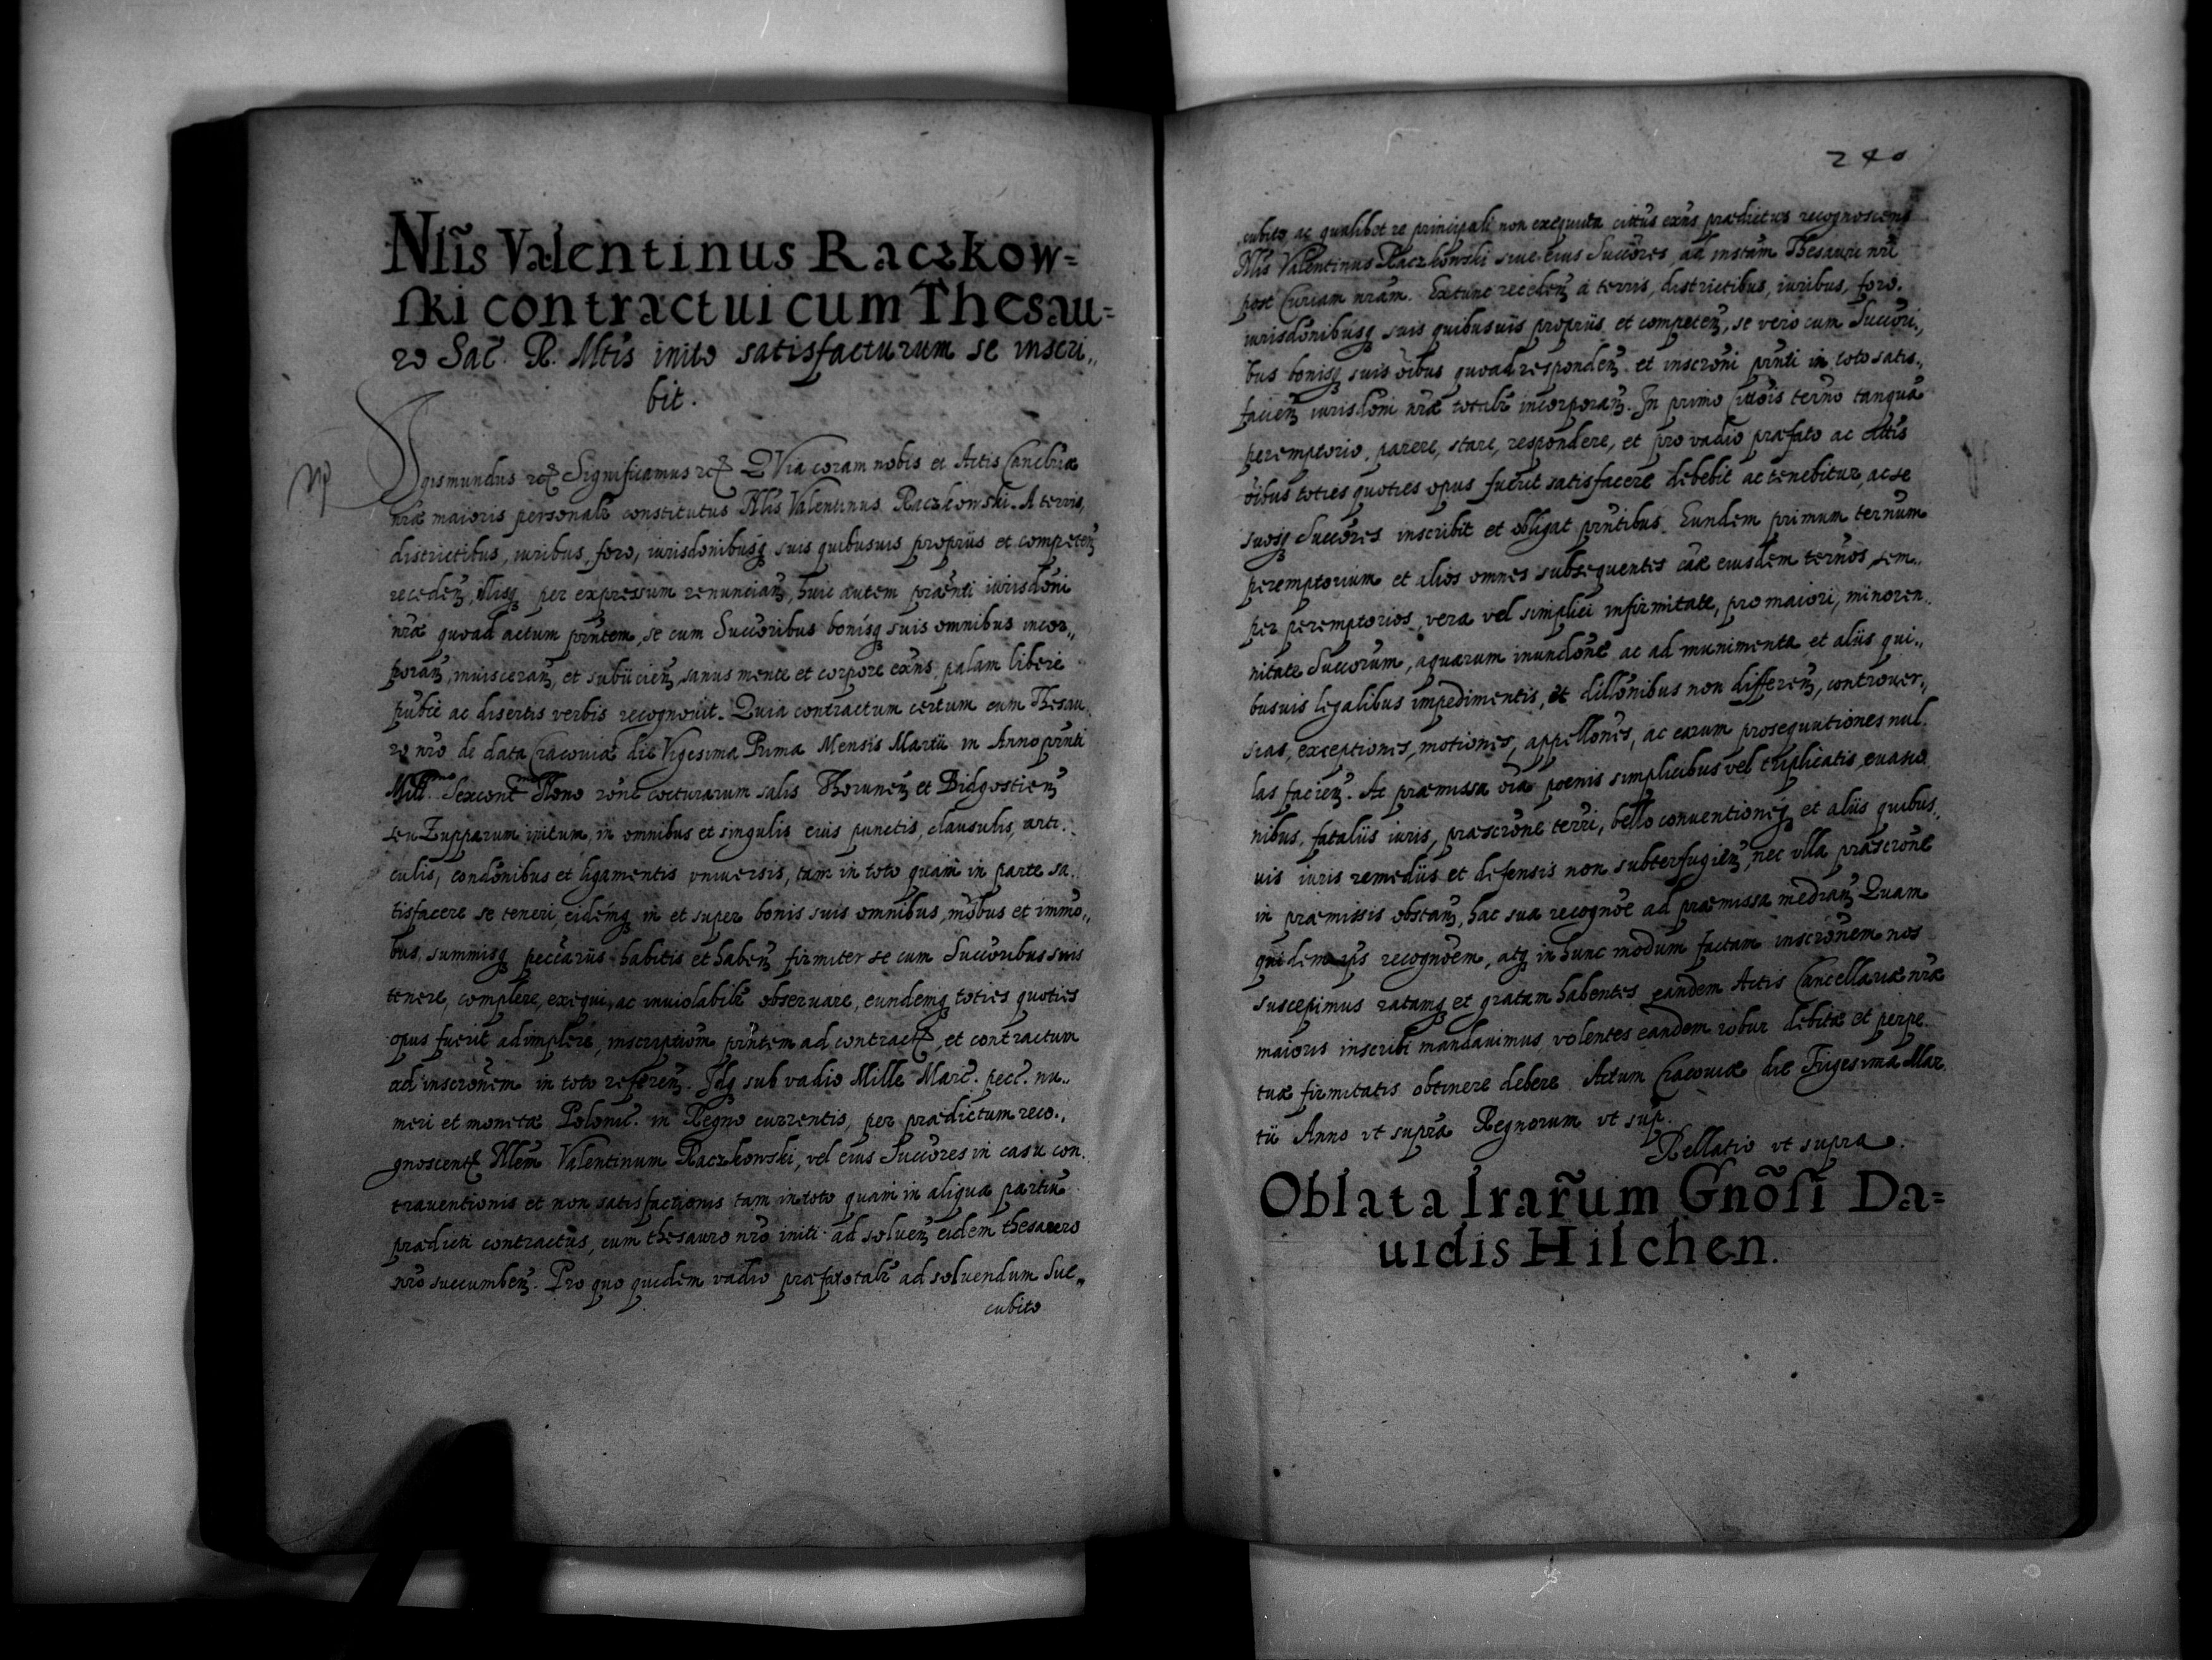 Nlis Valentinus Raczkow=
ski contractui cum Thesau=
ro Sac. R. Mtis inito satisfacturum se inscri„
bit.
Sigismundus etc. Significamus etc. QVia coram nobis et Actis Cancellriæ
nræ maioris personalr constitutus Nlis Valentinus Raczkowski. A terris,
districtibus, iuribus, foro, iurisdonibusq suis quibusuis proprijs et competen
receden, illisq per expressum renuncian, huic autem prænti iurisdoni
nræ quoad actum prntem, se cum Succoribus bonisq suis omnibus incor„
poran, inuisceran, et subijcien, sanus mente et corpore exns, palam libere
publce ac disertis verbis recognouit. Quia contractum certum cum Thesau„
ro nro de data Cracouiæ die Vigesima Prima Mensis Martij in Anno prnti
Mill.mo Sexcent.mo Nono rone cocturarum salis Thorunen et Bidgostien
seu Zupparum initum, in omnibus et singulis eius punctis, clausulis, arti„
culis, condonibus et ligamentis vniuersis, tam in toto quam in parte sa„
tisfacere se teneri, eidemq in et super bonis suis omnibus, mobus et immo„
bus, summisq peccarijs habitis et haben firmiter se cum Succoribus suis
tenere, complere, exequi, ac inuiolabilr obseruare, eundemq toties quoties
opus fuerit adimplere, inscriptiom prntem ad contract, et contractum
ad inscronem in toto referen. Idq sub vadio Mille Marc. pecc. nu„
meri et monetæ Polonic. in Regno currentis, per prædictum reco„
gnoscent Nlem Valentinum Raczkowski, vel eius Succores in casu con„
trauentionis et non satisfactionis tam in toto quam in aliqua parte
prædicti contractus, cum thesauro nro initi ad soluen eidem thesauro
nro succumben. Pro quo quidem vadio præfato talr ad soluendum Suc„
cubito
240
cubito ac qualibet re principali non exequuta cittus exns prædictus recognoscens
Nlis Valentinus Raczkowski siue eius Succores, ad instam Thesauri nri
post Curiam nram. Extunc receden a terris, districtibus, iuribus, foro,
iurisdonibusq suis quibusuis proprijs et competen, se vero cum Succori„
bus bonisq suis oibus quoad responden et inscroni prnti in toto satis„
facien iurisdoni nræ totalr incorporan. In primo cittois terno tanqua
peremptorio, parere, stare, respondere, et pro vadio præfato ac attis
oibus toties quoties opus fuerit satisfacere debebit ac tenebitur, ac se
suosq Succores inscribit et obligat prntibus. Eundem primum ternum
peremptorium et alios omnes subsequentes cæ eiusdem ternos, sem„
per peremptorios, vera vel simplici infirmitate, pro maiori, minoren„
nitate Succorum, aquarum inundone ac ad munimenta et alijs qui„
busuis legalibus impedimentis, et dillonibus non differen, controuer„
sias, exceptiones, motiones, appellones, ac earum prosequutiones nul„
las facien. Ac præmissa oia poenis simplicibus vel triplicatis, euasio„
nibus, fatalijs iuris, præscrone terri, bello conuentioneq et alijs quibus„
uis iuris remedijs et defensis non subterfugien, nec vlla præscrone
in præmissis obstan, hac sua recognoe ad præmissa median. Quam
quidem recognoem, atq in hunc modum factam inscronem nos
suscepimus ratamq et gratam habentes eandem Actis Cancellariæ nræ
maioris inscribi mandauimus, volentes eandem robur debitæ et perpe„
tuæ firmitatis obtinere debere. Actum Cracouiæ die Trigesima Mar„
tij Anno vt supra Regnorum vt sup.
Rellatio vt supra.
Oblata lrarum Gnosi Da=
uidis Hilchen.